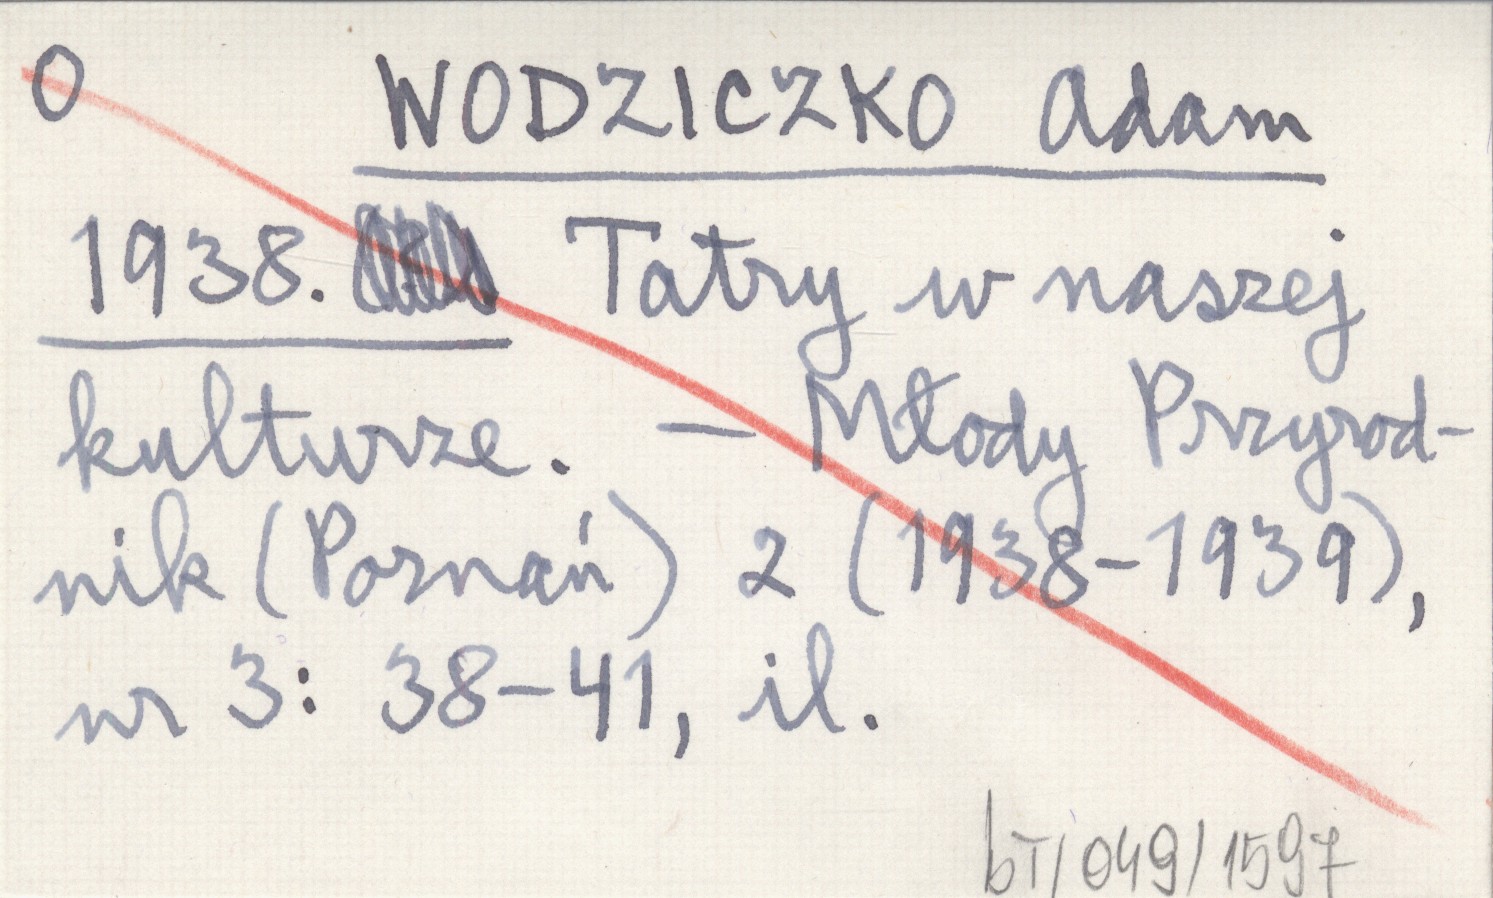 O WODZICZKO Adam
1938. Tatry w naszej
kulturze. — Młody Przyrod-
nik (Poznań) 2 (1938-1939),
nr 3: 38-41, il.
bT/049/1597